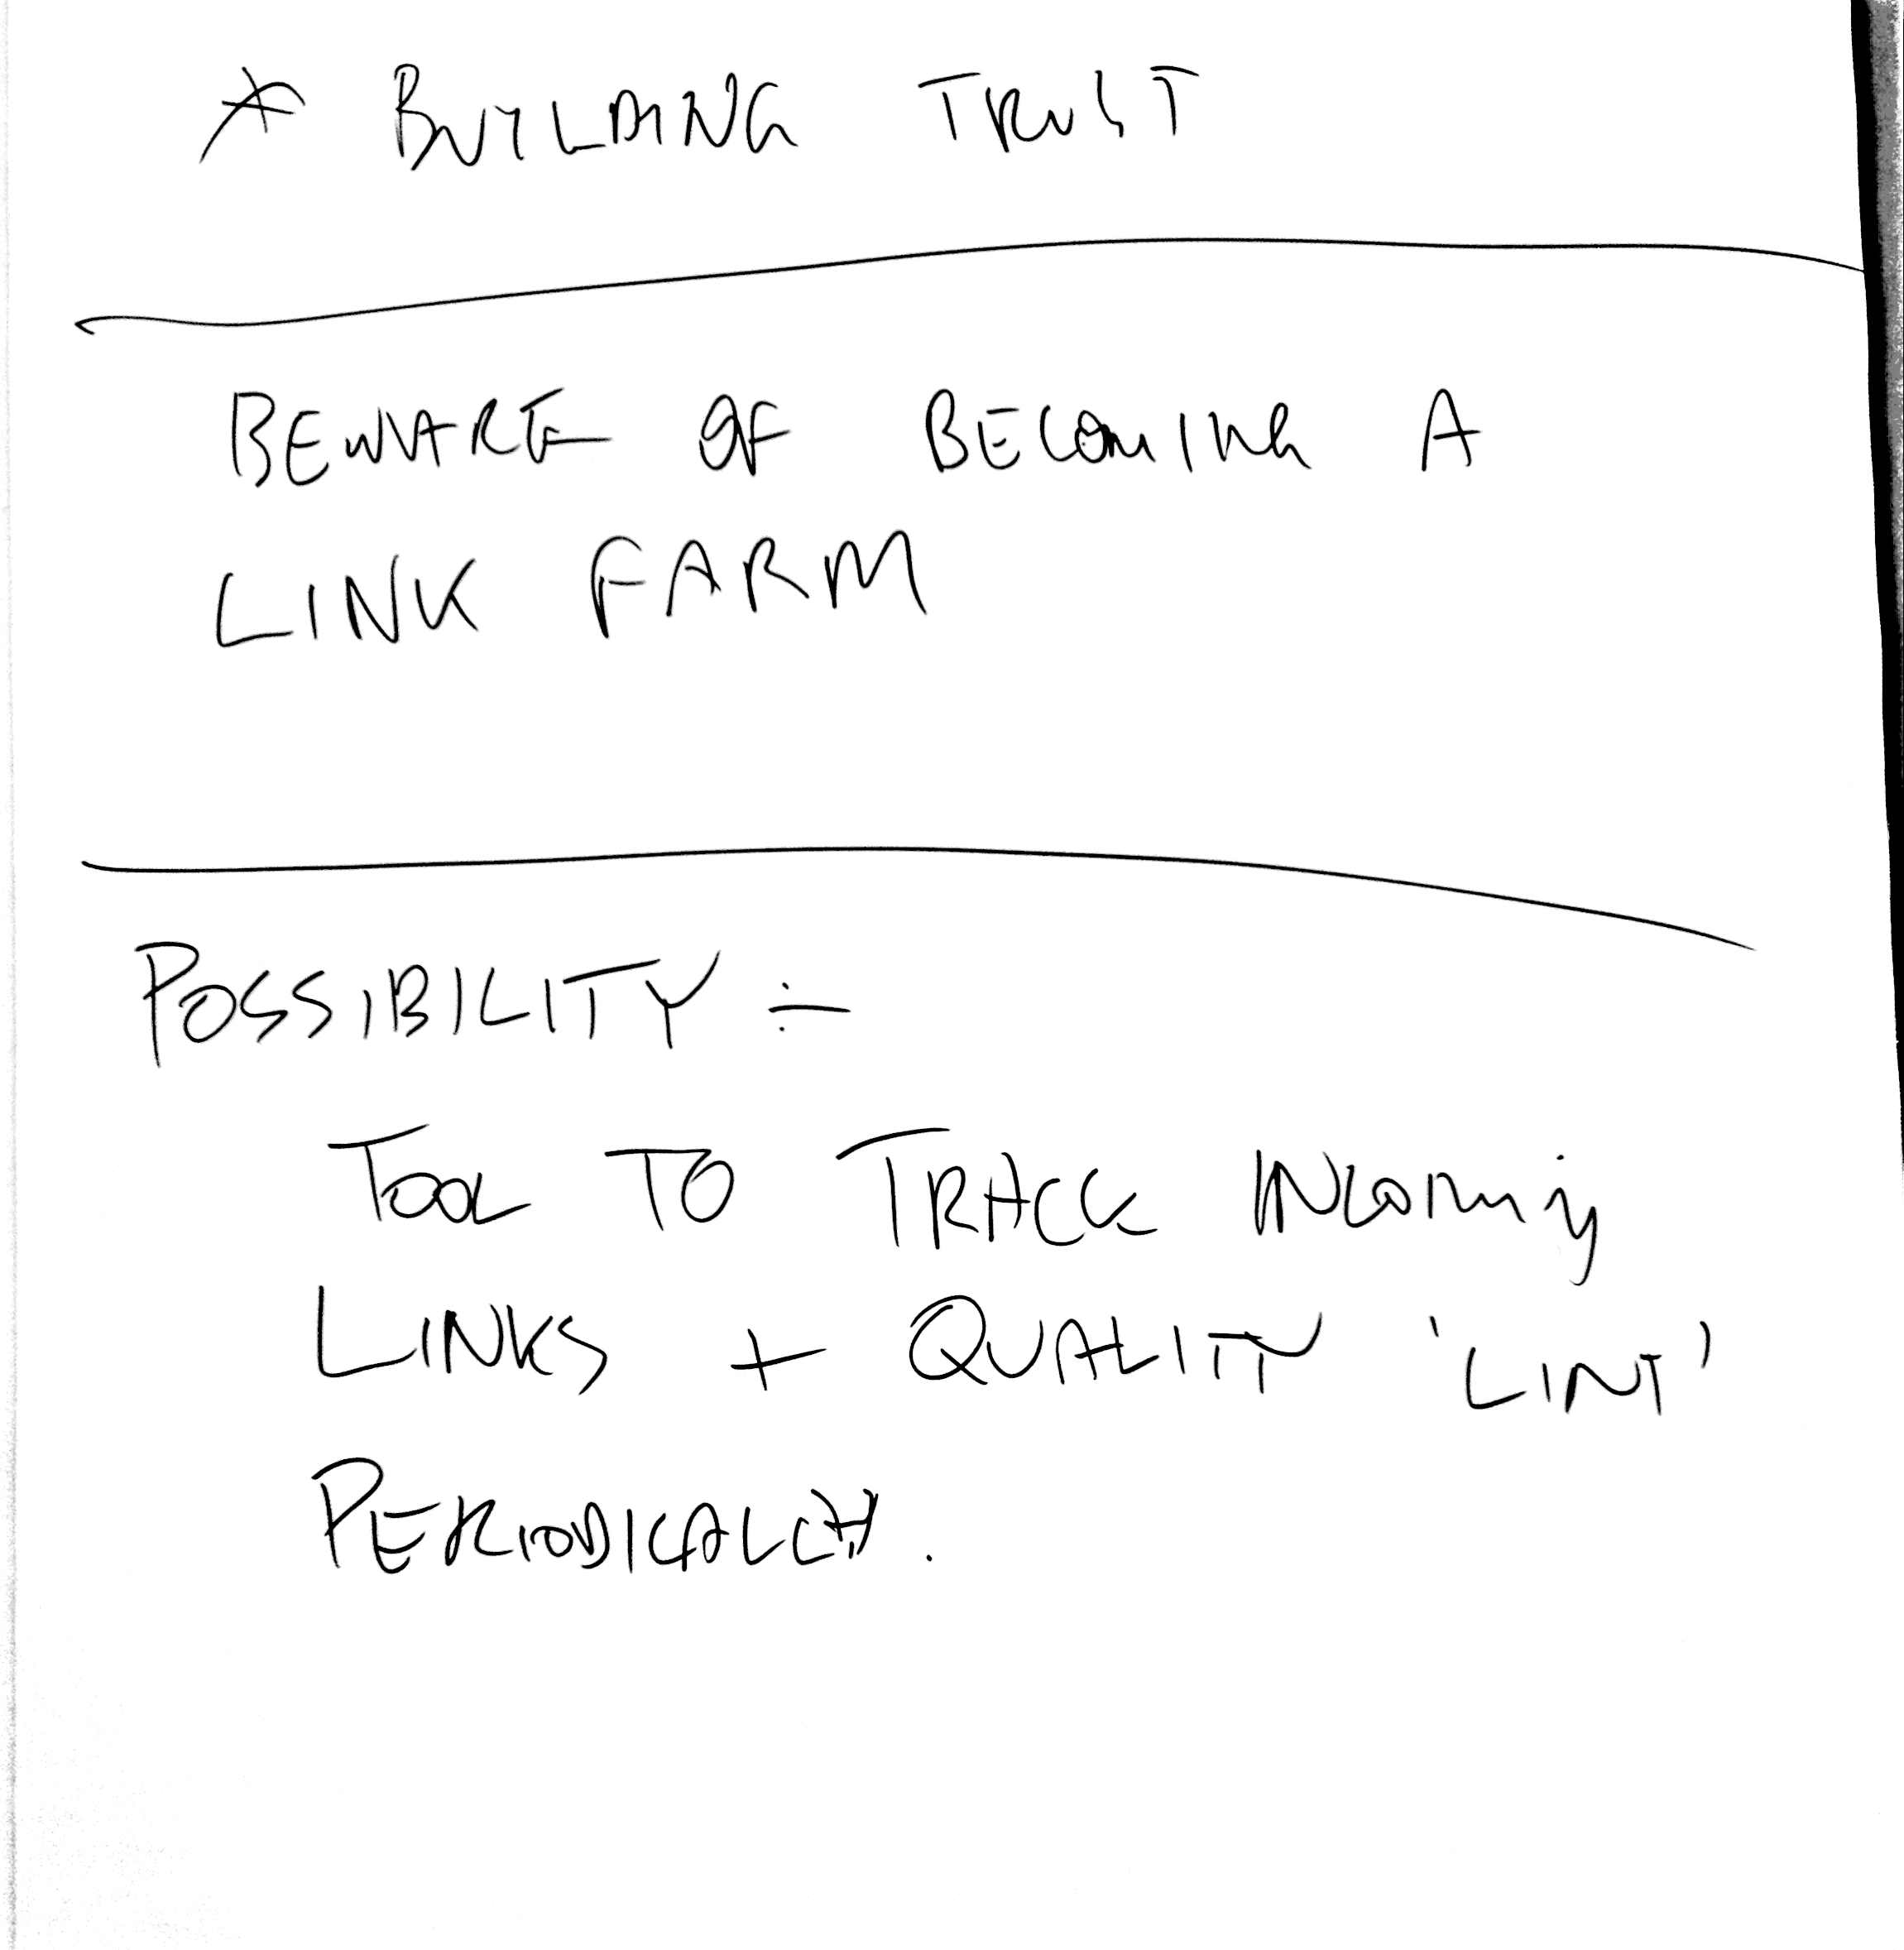 * BUILDING TRUST
BEWARE OF BECOMING A
LINK FARM
POSSIBILITY :-
TOOL TO TRACK INCOMING
LINKS + QUALITY 'LINT'
PERIODICALLY.